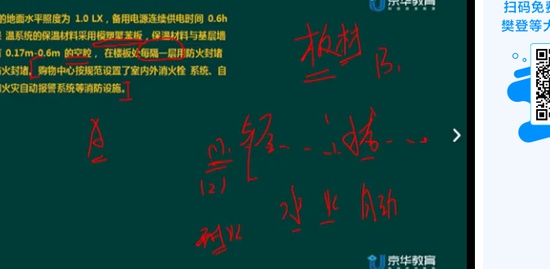 京华教育
的地面水平照度为 1.0 LX，备用电源连续供电时间 0.6h
温系统的保温材料采用模塑聚苯板，保温材料与基层墙
0.17m-0.6m 的空腔，在楼板处每隔一层用防火封堵
火封堵。购物中心按规范设置了室内外消火栓 系统、自
火灾自动报警系统等消防设施。
板材
B₁
A
(2)
耐火
水 火 自动
京华教育
扫码免费
樊登等大